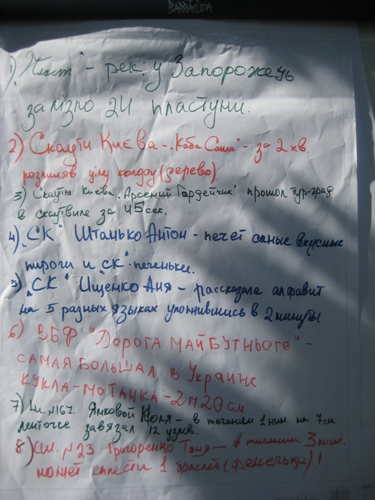 BARRACUDA
1) "Пласт" - рек. у Запорожець
залізло 24 пластуни.
2) Скаути Києва - "Каба Саша" - за 2 хв.
розпиляв цілу колоду (дерево)
3) Скауты Киева "Арсений Гардейчик" прошол тур-град
в скаутвиле за 45 сек.
4) "СК" Штанько Антон - печет самые вкусные
пироги и "СК"-печеньки.
5) "СК" Ищенко Аня - рассказала алфавит
на 5 разных языках уложившись в 2 минуты
6) ВБФ "Дорога майбутнього" -
самая большая в Украине
кукла-мотанка - 2 м 20 см
7) №167 Янковой Коля - в течении 1 мин. на 7 см.
ленточке завязал 12 узлов.
8) №23 Григоренко Таня - в течении 3 мин.
может сплести 1 браслет (фенечки)!